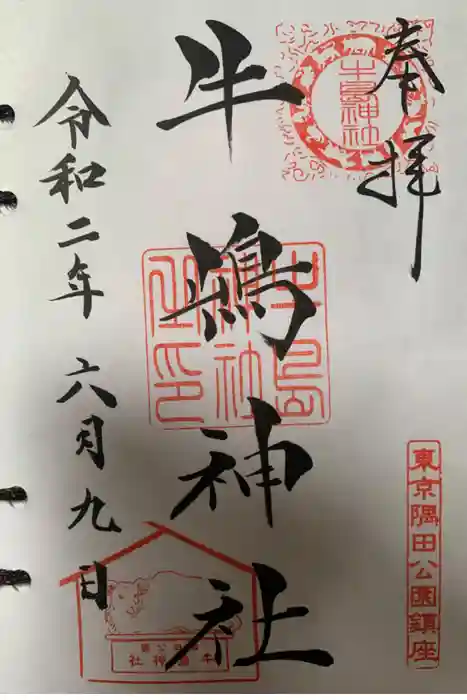 奉拝
牛島神社
東京隅田公園鎮座
牛嶋神社
牛島神社之印
令和二年六月九日
牛島神社